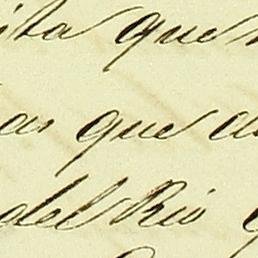 ita que
as que a
del Rio